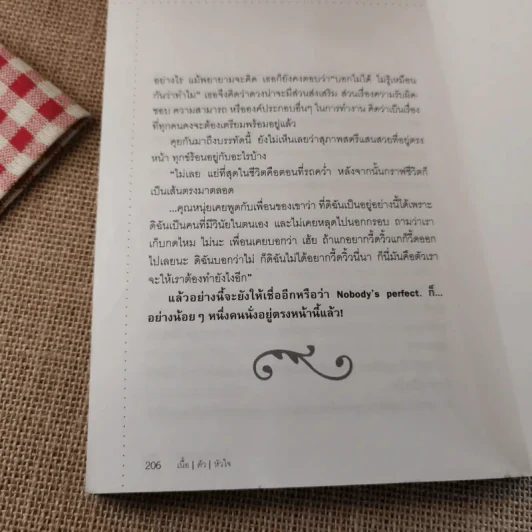 อย่างไร แม้พยายามจะคิด เธอก็ยังคงตอบว่า“บอกไม่ได้ ไม่รู้เหมือน
กันว่าทำไม” เธอจึงคิดว่าดวงน่าจะมีส่วนส่งเสริม ส่วนเรื่องความรับผิด-
ชอบ ความสามารถ หรือองค์ประกอบอื่นๆ ในการทำงาน คิดว่าเป็นเรื่อง
ที่ทุกคนคงจะต้องเตรียมพร้อมอยู่แล้ว
คุยกันมาถึงบรรทัดนี้ ยังไม่เห็นเลยว่าสุภาพสตรีแสนสวยที่อยู่ตรง
หน้า ทุกข์ร้อนอยู่กับอะไรบ้าง
“ไม่เลย แย่ที่สุดในชีวิตคือตอนที่รถคว่ำ หลังจากนั้นกราฟชีวิตก็
เป็นเส้นตรงมาตลอด
...คุณหนุ่ยเคยพูดกับเพื่อนของเขาว่า ที่ดิฉันเป็นอยู่อย่างนี้ได้เพราะ
ดิฉันเป็นคนที่มีวินัยในตนเอง และไม่เคยหลุดไปนอกกรอบ ถามว่าเรา
เก็บกดไหม ไม่นะ เพื่อนเคยบอกว่า เฮ้ย ถ้าแกอยากวี้ดวิ้วแกก็วี้ดออก
ไปเลยนะ ดิฉันบอกว่าไม่ ก็ดิฉันไม่ได้อยากวี้ดวิ้วนี่นา ก็นี่มันคือตัวเรา
จะให้เราต้องทำยังไงอีก”
แล้วอย่างนี้จะยังให้เชื่ออีกหรือว่า Nobody's perfect. ก็...
อย่างน้อยๆ หนึ่งคนนั่งอยู่ตรงหน้านี้แล้ว!
206 เนื้อ | ตัว | หัวใจ